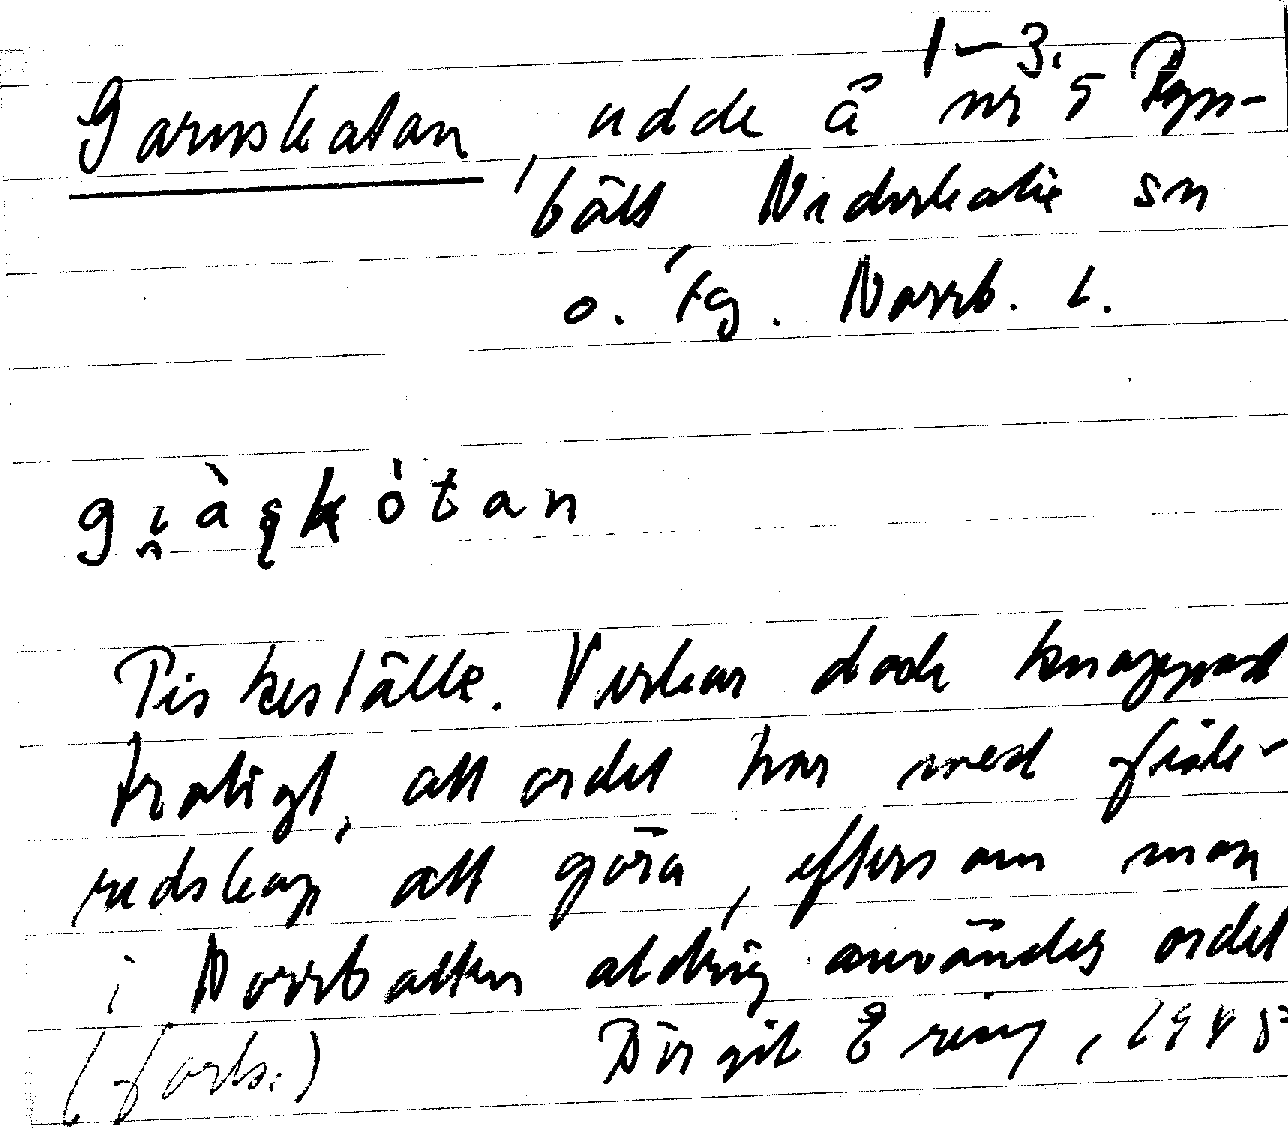 1–3.
Garnskatan, udde å nr 5 Ryss-
bält, Nederkalix sn
o. tg. Norrb. l.
Fiskeställe. Verkar dock knappast
troligt, att ordet har med fiske-
redskap att göra, eftersom man
i Norrbotten aldrig användes ordet
(forts.) Birgit Ering, 1948